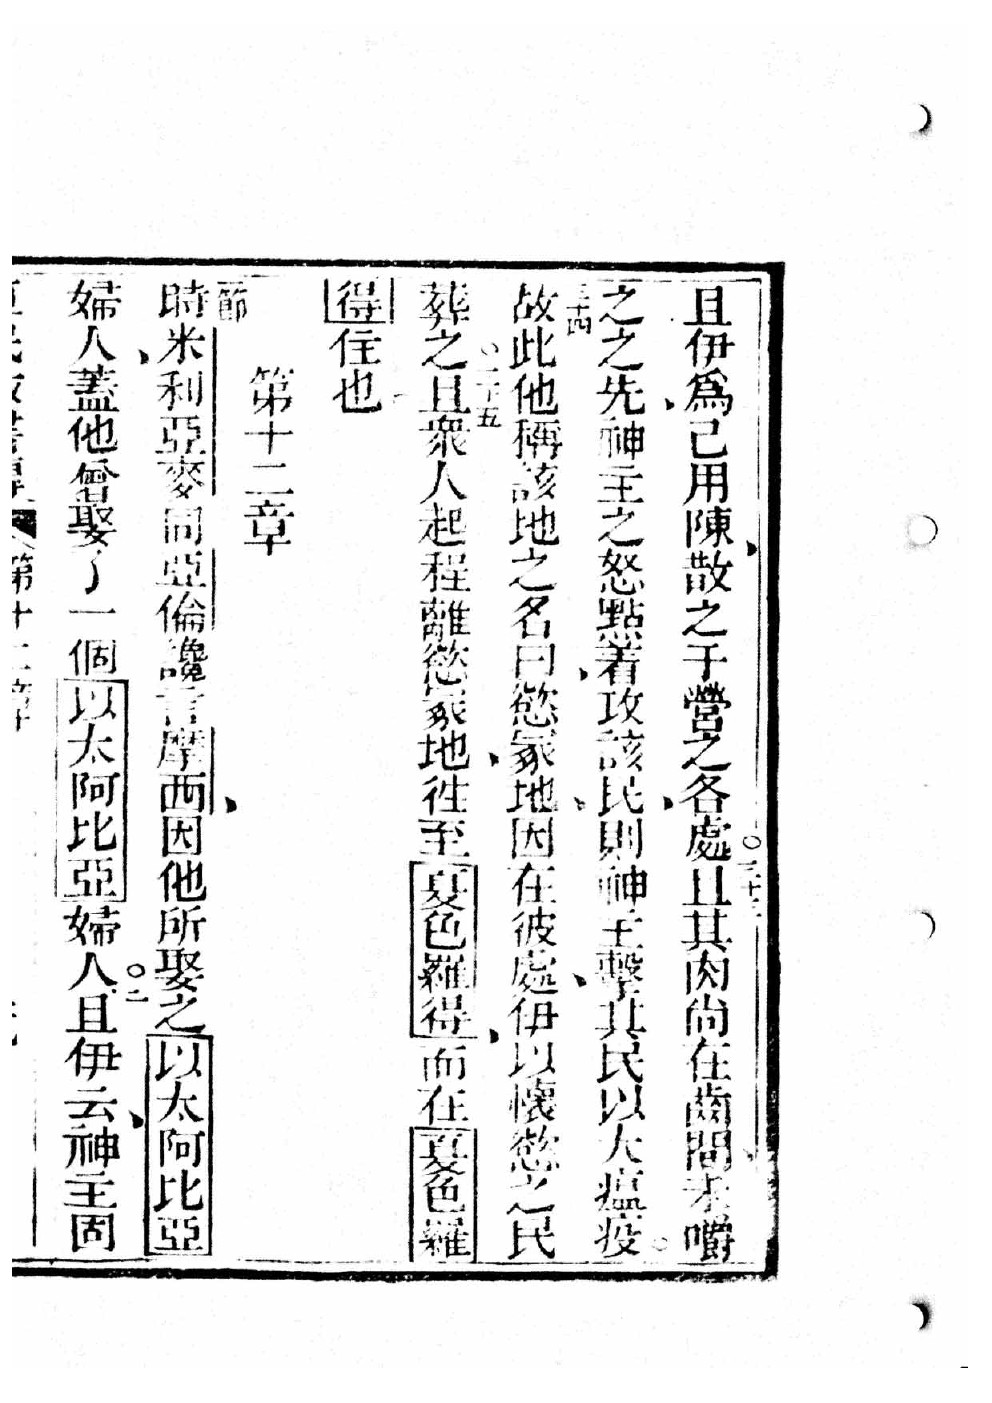 且伊爲己用陳散之于營之各處〇三十三且其肉尚在齒間未嚼
之之先神主之怒點着攻該民則神主擊其民以大瘟疫〇
三十四故此他稱該地之名曰慾冢地因在彼處伊以懷慾之民
葬之〇三十五且衆人起程離慾冢地徃至夏色羅得而在夏色羅
得住也
第十二章
節
時米利亞麥同亞倫讒言摩西因他所娶之以太阿比亞
婦人蓋他曾娶了一個以太阿比亞婦人〇二且伊云神主固
第十二章